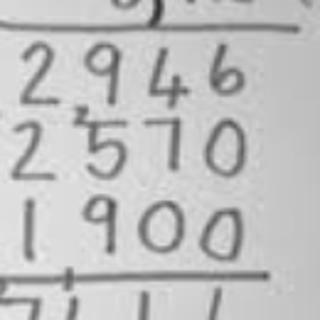 2946
2
2570
1900